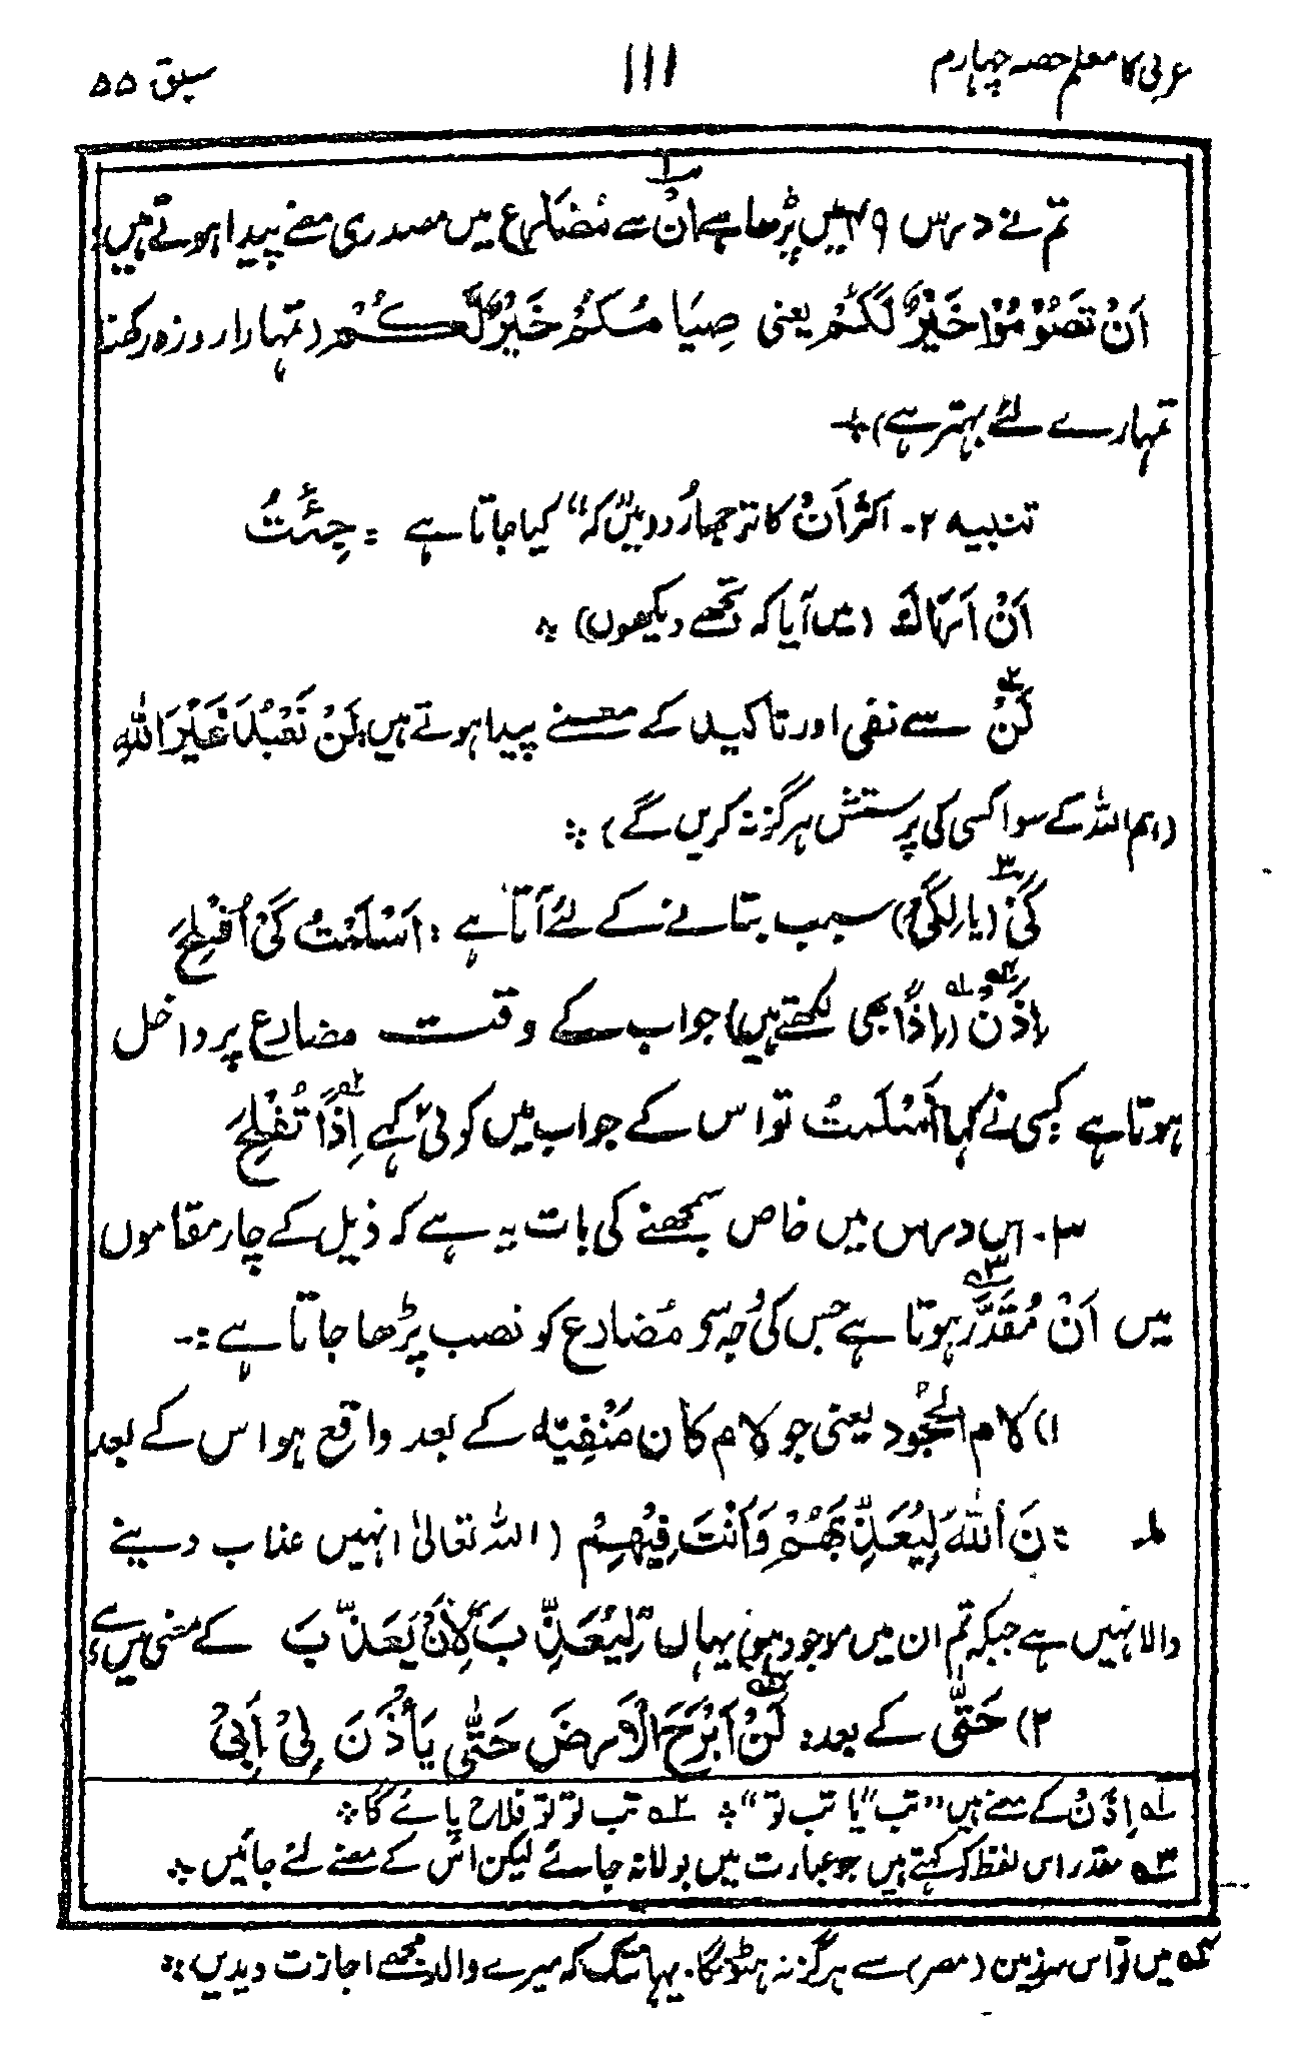 عربی کا معلم حصہ چہارم ۱۱۱ سبق ۵۵
تم نے درس ۴۹ میں پڑھا ہے اَنْ سے مُضَارع میں مصدری معنے پیدا ہوتے ہیں:
اَنْ تَصُوْمُوْا خَيْرٌ لَّكُمْ یعنی صِيَامُكُمْ خَيْرٌ لَّكُمْ (تمہارا روزہ رکھنا
تمہارے لئے بہتر ہے)
تنبیہ ۲۔ اکثر اَنْ کا ترجمہ اُردو میں "کہ" کیا جاتا ہے : جِئْتُ
اَنْ اَرَاكَ (میں آیا کہ تجھے دیکھوں)
۲ لَنْ سے نفی اور تاکید کے معنے پیدا ہوتے ہیں: لَنْ نَعْبُدَ غَيْرَ اللهِ
(ہم اللہ کے سوا کسی کی پرستش ہرگز نہ کریں گے)
۳ كَىْ (یا لِكَىْ) سبب بتانے کے لئے آتا ہے : اَسْلَمْتُ كَىْ اُفْلِحَ
۴ اِذَنْ ؎۱ (اِذًا بھی لکھتے ہیں) جواب کے وقت مضارع پر داخل
ہوتا ہے کسی نے کہا اَسْلَمْتُ تو اس کے جواب میں کوئی کہے اِذًا تُفْلِحَ ؎۲
۳۔ اس درس میں خاص سمجھنے کی بات یہ ہے کہ ذیل کے چار مقاموں
میں اَنْ مُقَدَّر ؎۳ ہوتا ہے جس کی وجہ سے مُضارع کو نصب پڑھا جاتا ہے :-
۱) لام الجُحُود یعنی جو لام کان مَنْفِيّه کے بعد واقع ہو اس کے بعد
: نَ اللهُ لِيُعَذِّبَهُمْ وَاَنْتَ فِيْهِمْ (اللہ تعالیٰ انہیں عذاب دینے
والا نہیں ہے جبکہ تم ان میں موجود ہو) یہاں لِيُعَذِّبَ لِاَنْ يُعَذِّبَ کے معنی میں ہے
۲) حَتّٰى کے بعد: لَنْ اَبْرَحَ الْاَرْضَ حَتّٰى يَأْذَنَ لِىْ اَبِىْ ؎۴
؎۱ اِذَنْ کے معنے ہیں "تب" یا "تب تو" ؎۲ تب تو تو فلاح پائے گا
؎۳ مقدر اس لفظ کو کہتے ہیں جو عبارت میں بولا نہ جائے لیکن اس کے معنے لئے جائیں
؎۴ میں تو اس سرزمین (مصر) سے ہرگز نہ ہٹونگا۔ یہانتک کہ میرے والد مجھے اجازت دیدیں